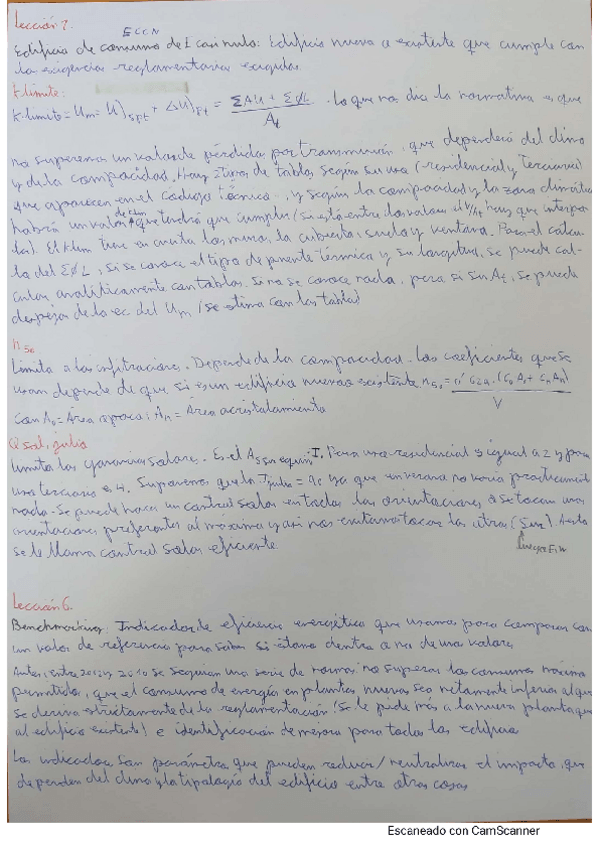 Lección 7.
ECCN
Edificio de consumo de E casi nulo: Edificio nuevo o existente que cumple con
las exigencias reglamentarias exigidas.
K límite:
K límite = Um = U)spt + ΔU)pt = ΣAU + ΣψL / At . Lo que nos dice la normativa es que
no superemos un valor de pérdida por transmisión, que dependerá del clima
y de la compacidad. Hay tipos de tablas según su uso (residencial y terciario)
que aparecen en el Código Técnico, y según la compacidad y la zona climática
habrá un valor de Klim que tendrá que cumplir (si está entre los valores V/At hay que interpo-
lar). El Klim tiene en cuenta los muros, la cubierta, suelo y ventana. Para el cálcu-
lo del ΣψL, si se conoce el tipo de puente térmico y su longitud, se puede cal-
cular analíticamente con tablas. Si no se conoce nada, pero si su At, se puede
despejar de la ec. del Um (se estima con las tablas)
n50
Limita a las infiltraciones. Depende de la compacidad. Los coeficientes que se
usan depende de que si es un edificio nuevo o existente
Con Ao = Área opaca; Ah = Área acristalamiento
Q sol, julio
Limita las ganancias solares. Es el A sol equiv · I. Para uso residencial es igual a 2 y para
uso terciario es 4. Suponemos que la I julio = cte ya que en verano no varía prácticamente
nada. Se puede hacer un control solar en todas las orientaciones o se tocan unas
orientaciones preferentes al máximo y así nos evitamos tocar las otras (Sur). A esto
se le llama control solar eficiente.
luego E, W
Lección 6.
Benchmarking: Indicador de eficiencia energética que usamos para comparar con
un valor de referencia para saber si estamos dentro o no de unos valores
Antes, entre y 2010 se seguían una serie de normas: no superar los consumos máximos
permitidos, que el consumo de energía en plantas nuevas sea netamente inferior al que
se deriva estrictamente de la reglamentación (Se le pide más a la nueva planta que
al edificio existente) e identificación de mejora para todos los edificios
Los indicadores son parámetros que pueden reducir/neutralizar el impacto, que
dependen del clima y la tipología del edificio entre otras cosas
Escaneado con CamScanner